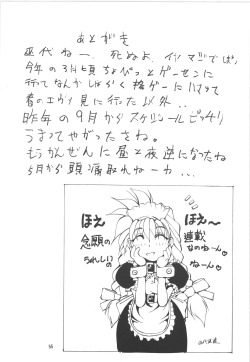 あとがき
死ぬよ、イヤマジでば。
今年の3月頃ちょびっとゲーセンに
行てなんかしばらく格ゲーにハマッて
春のエヴァ見に行った以外‥
昨年の9月からスケジュールビッチリ
うまってやがったさね。
もうかんぜんに昼と夜逆になったね
5月から頭痛取れねーわ…
ほえ〜
連載
なのねーん
ほえ
念願の
うれしいの
ねーん